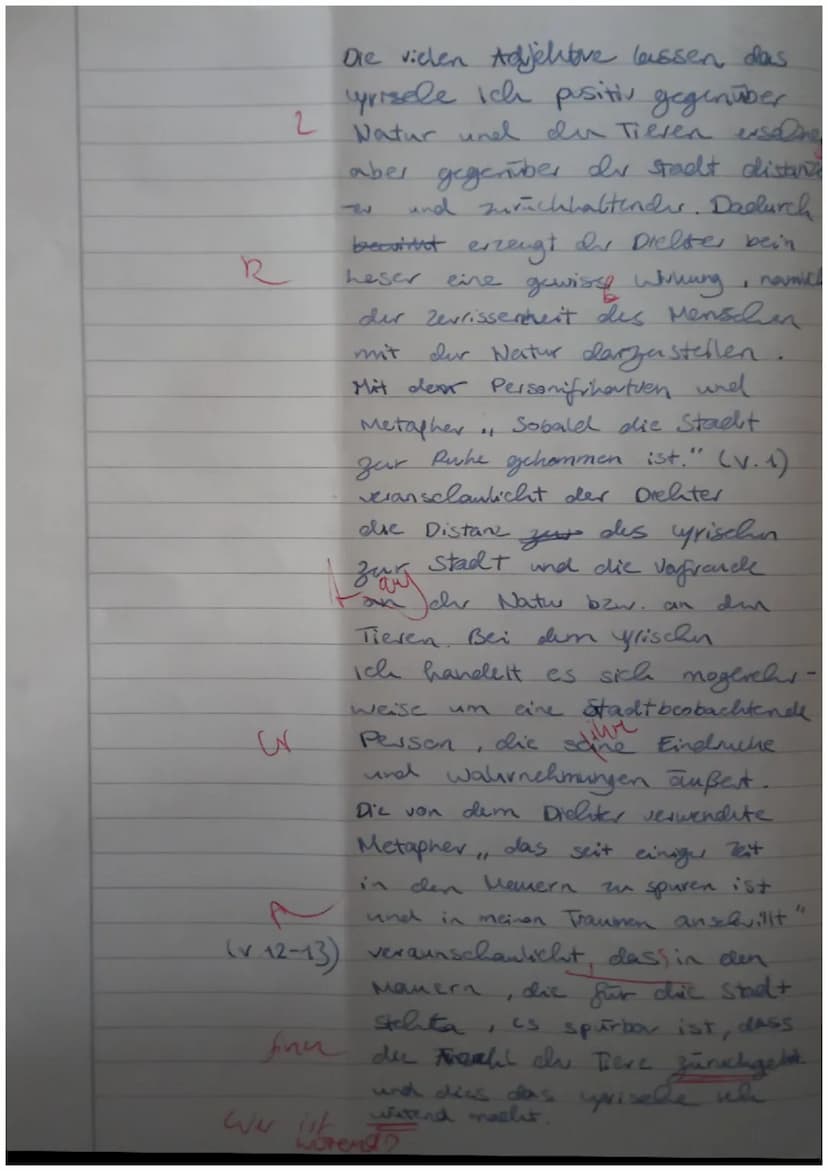 Die vielen Adjektive lassen das
lyrische Ich positiv gegenüber
Z Natur und den Tieren
aber gegenüber der Stadt distanz
und zurückhaltender. Dadurch
bewirkt erzeugt der Dichter bein
R Leser eine gewisse Wirkung, nämlich
der Zerrissenheit des Menschen
mit der Natur darzustellen.
Mit Personifikationen und
Metapher „Sobald die Stadt
zur Ruhe gekommen ist." (V. 1)
veranschaulicht der Dichter
die Distanz zur des lyrischen
zur Stadt und die Vorfreude
auf
an der Natur bzw. an den
Tieren. Bei dem lyrischen
Ich handelt es sich
weise um eine Stadtbeobachtende
ihre
W Person, die seine Eindrücke
und Wahrnehmungen äußert.
Die von dem Dichter verwendete
Metapher „das seit einiger Zeit
in den Mauern zu spüren ist
A und in meinen Träumen anschwillt"
(V 12-13) veraunschaulicht, dass in den
Mauern, die für die Stadt
stehen, es spürbar ist, dass
die der Tiere zurückgeht
und dies das lyrische Ich
wütend macht.
Wer ist wütend?